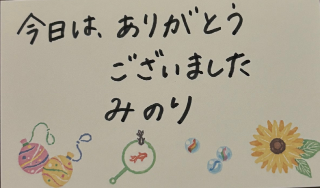 今日は、ありがとう
ございました
みのり